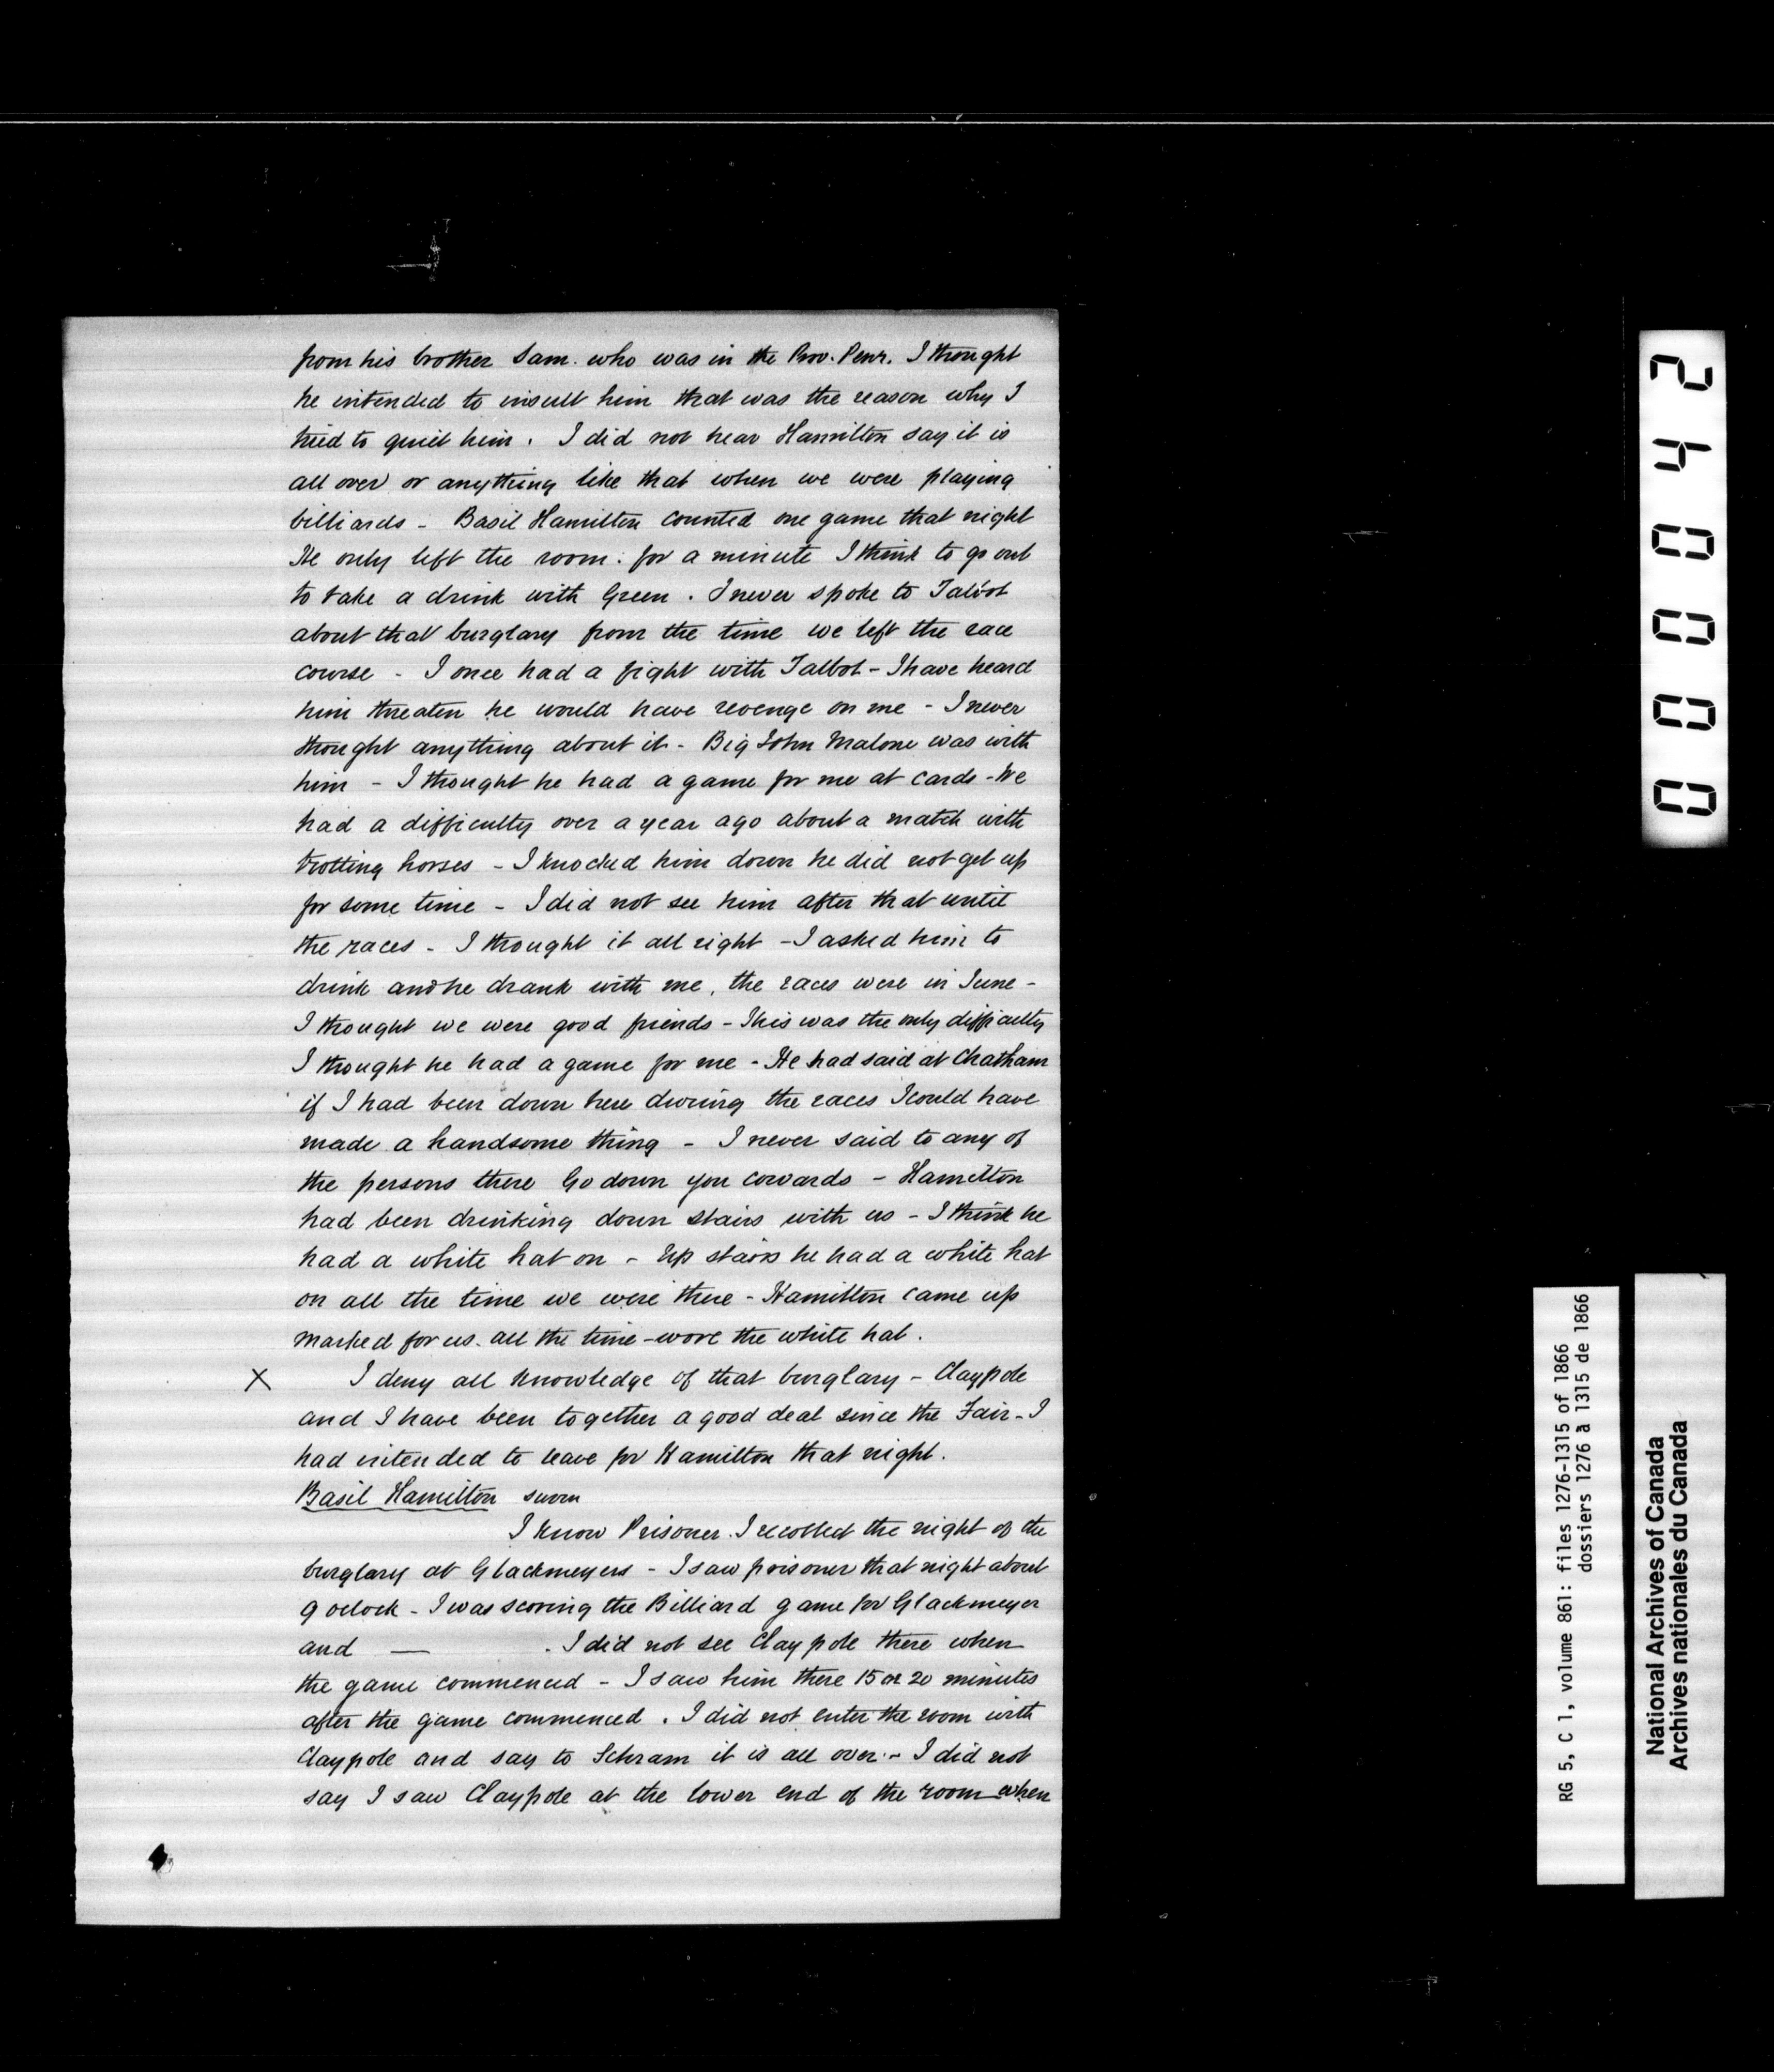 from his brother Sam. who was in the Prov. Penr. I thought
he intended to insult him that was the reason why I
tried to quiet him. I did not hear Hamilton say it is
all over or anything like that when we were playing
billiards - Basil Hamilton counted one game that night
He only left the room. for a minute I think to go out
to take a drink with Green. I never spoke to Talbot
about that burglary from the time we left the race
course - I once had a fight with Talbot - I have heard
him threaten he would have revenge on me - I never
thought anything about it - Big John Malone was with
him - I thought he had a game for me at cards - We
had a difficulty over a year ago about a match with
trotting horses - I knocked him down he did not get up
for some time - I did not see him after that until
the races - I thought it all right - I asked him to
drink and he drank with me, the races were in June -
I thought we were good friends - This was the only difficulty
I thought he had a game for me - He had said at Chatham
if I had been down here during the races I could have
made a handsome thing - I never said to any of
the persons there Go down you cowards - Hamilton
had been drinking down stairs with us - I think he
had a white hat on - Up stairs he had a white hat
on all the time we were there - Hamilton came up
marked for us. all the time - wore the white hat.
X I deny all knowledge of that burglary - Claypole
and I have been together a good deal since the Fair - I
had intended to leave for Hamilton that night.
Basil Hamilton sworn
I know Prisoner. I recollect the night of the
burglary at Glackmeyers - I saw prisoner that night about
9 oclock - I was scoring the Billiard game for Glackmeyer
and — . I did not see Claypole there when
the game commenced - I saw him there 15 or 20 minutes
after the game commenced. I did not enter the room with
Claypole and say to Schram it is all over - I did not
say I saw Claypole at the lower end of the room when
00042
RG 5, C 1, volume 861: files 1276-1315 of 1866
dossiers 1276 à 1315 de 1866
National Archives of Canada
Archives nationales du Canada